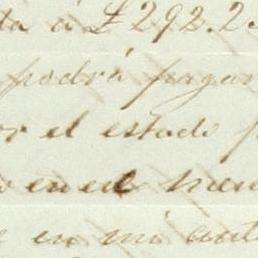 ta á £292.2
podrá pagar
or el estado
en el
en mi